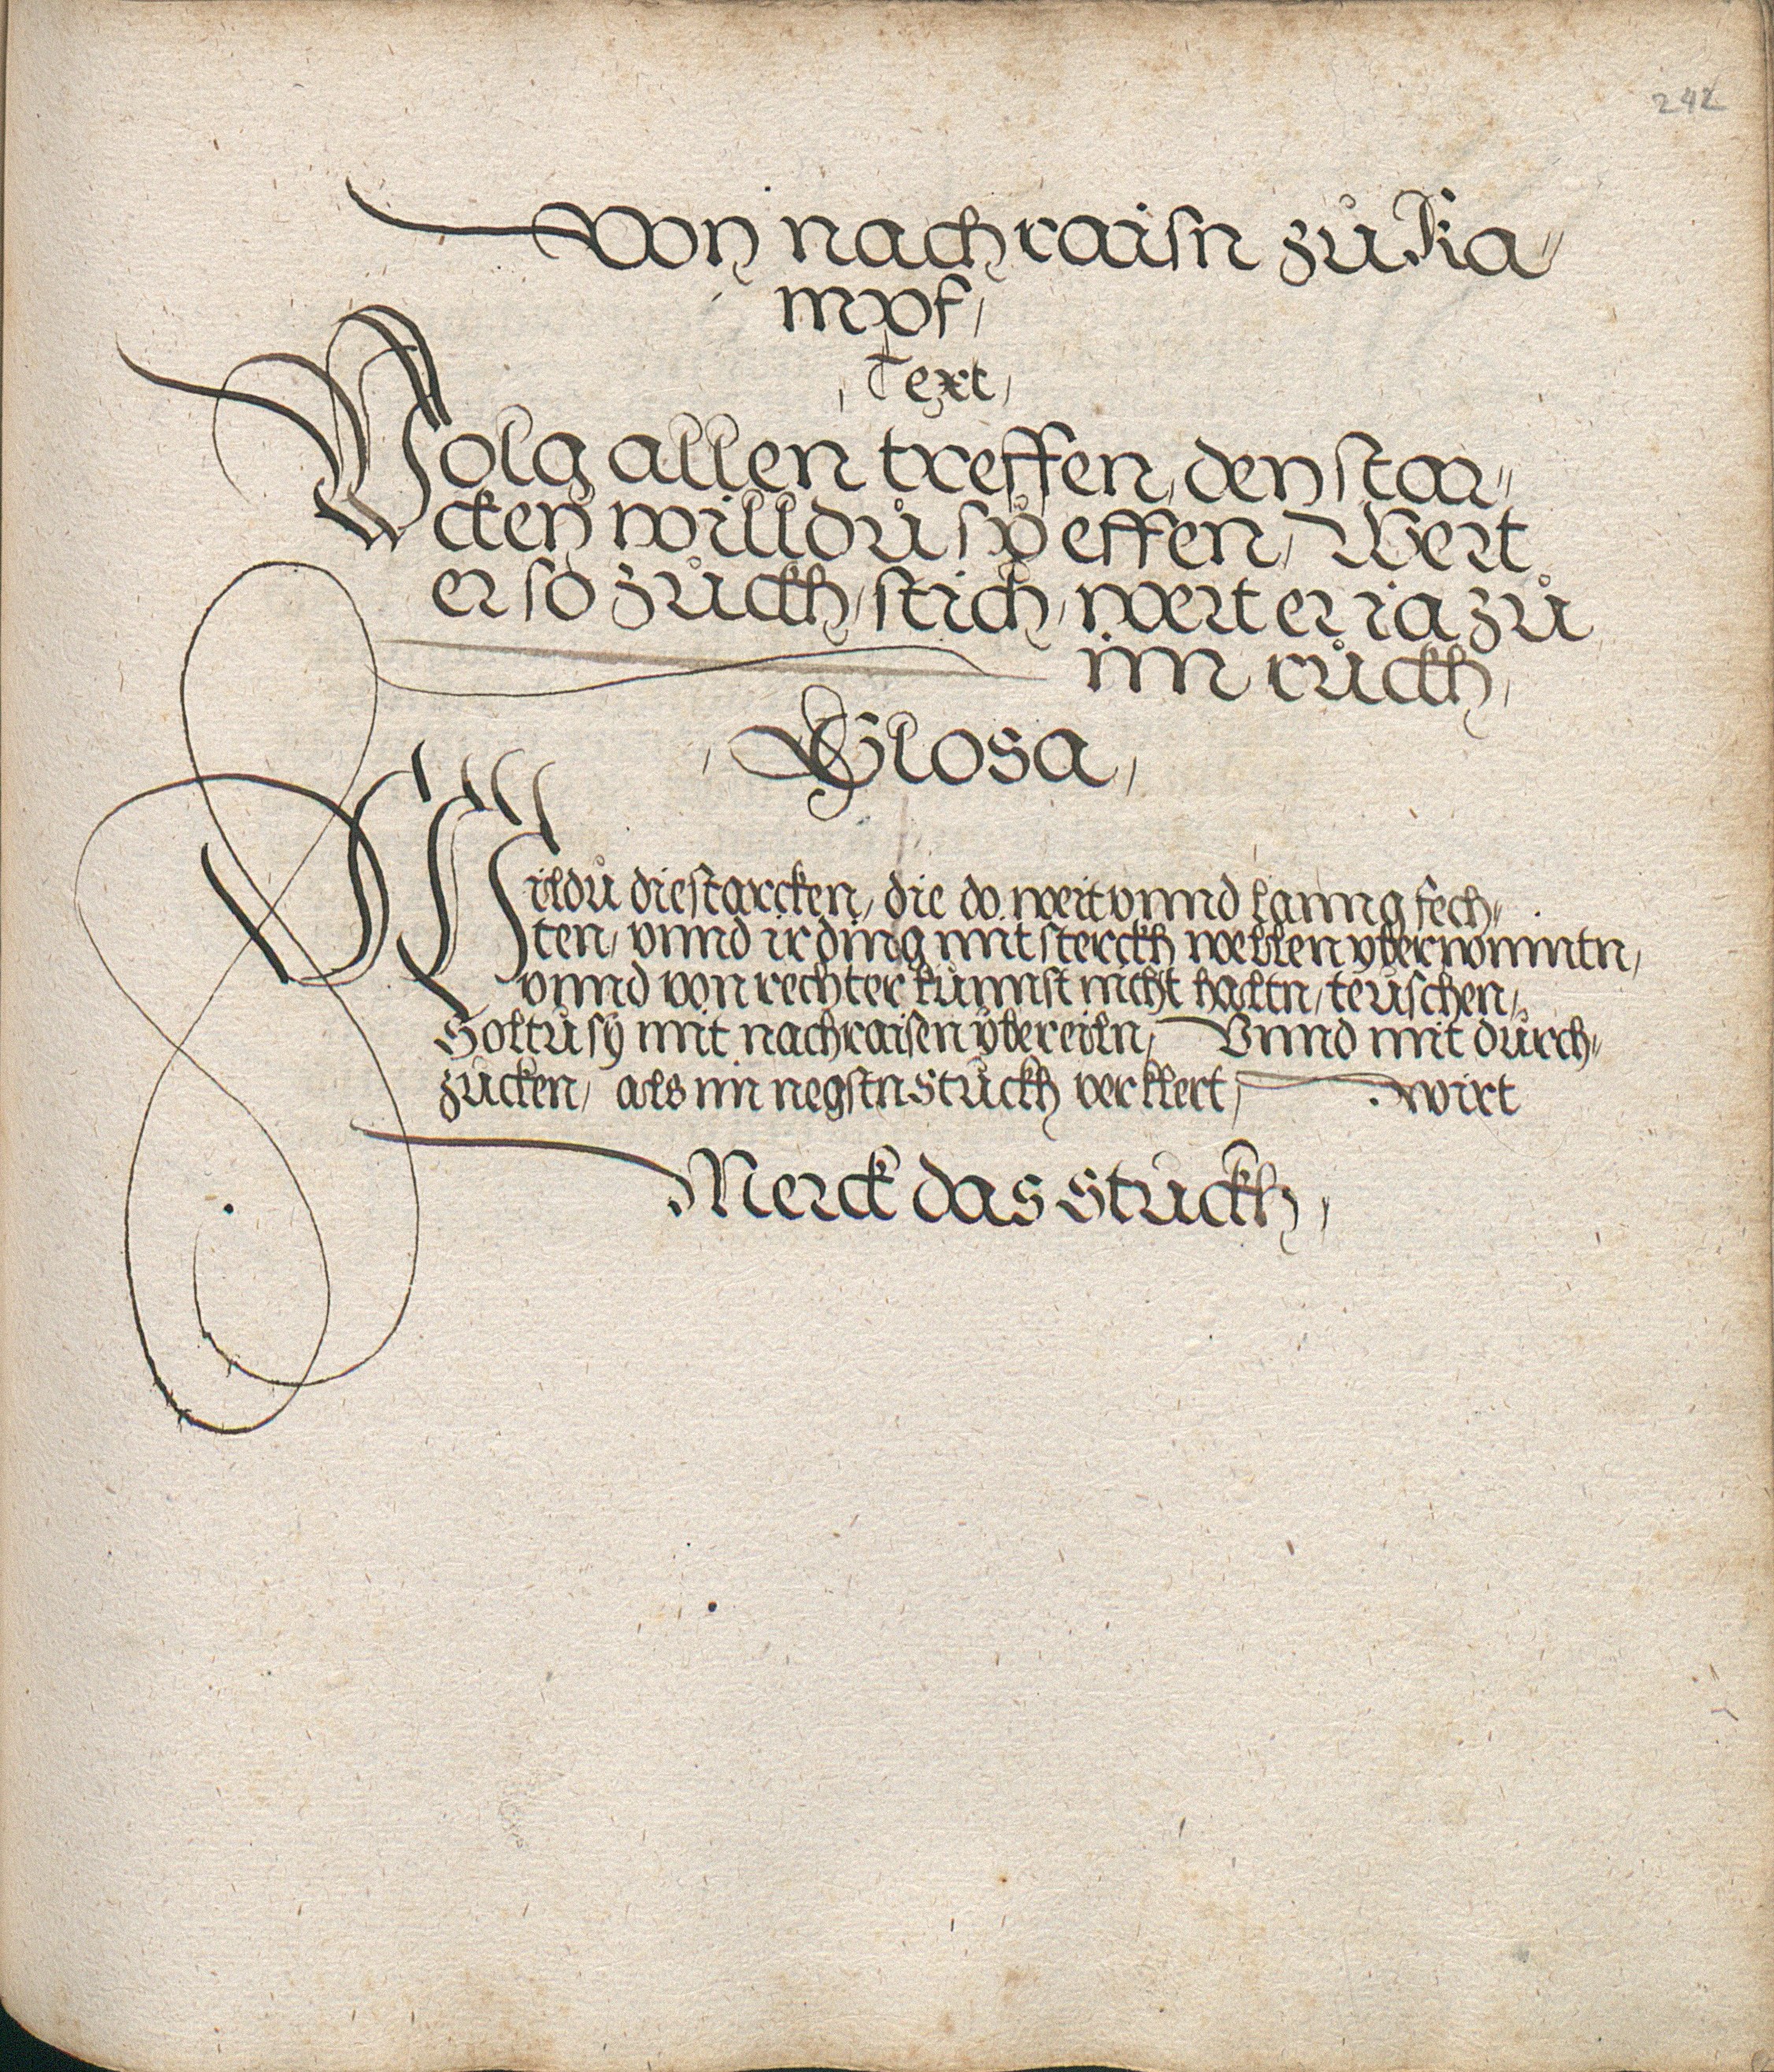 242
Von nachraisn zů Ka„
mpf,
, Text,
Volg allen treffen, den star„
cken willdů sy̆ effen, Wert
er so zůckh, stich, wert er ia zů
im růckh,
, Glosa,
Wildů die starcken, die do weit vnnd lanng fech„
ten, vnnd ir ding mit sterckh wellen
vnnd von rechter kůnnst nicht haltn, teůschen,
Soltů sÿ mit nachraisen ÿbereiln, Vnnd mit důrch„
zůcken, als im negstn stůckh verklert, wirt
Merck das stůckh,